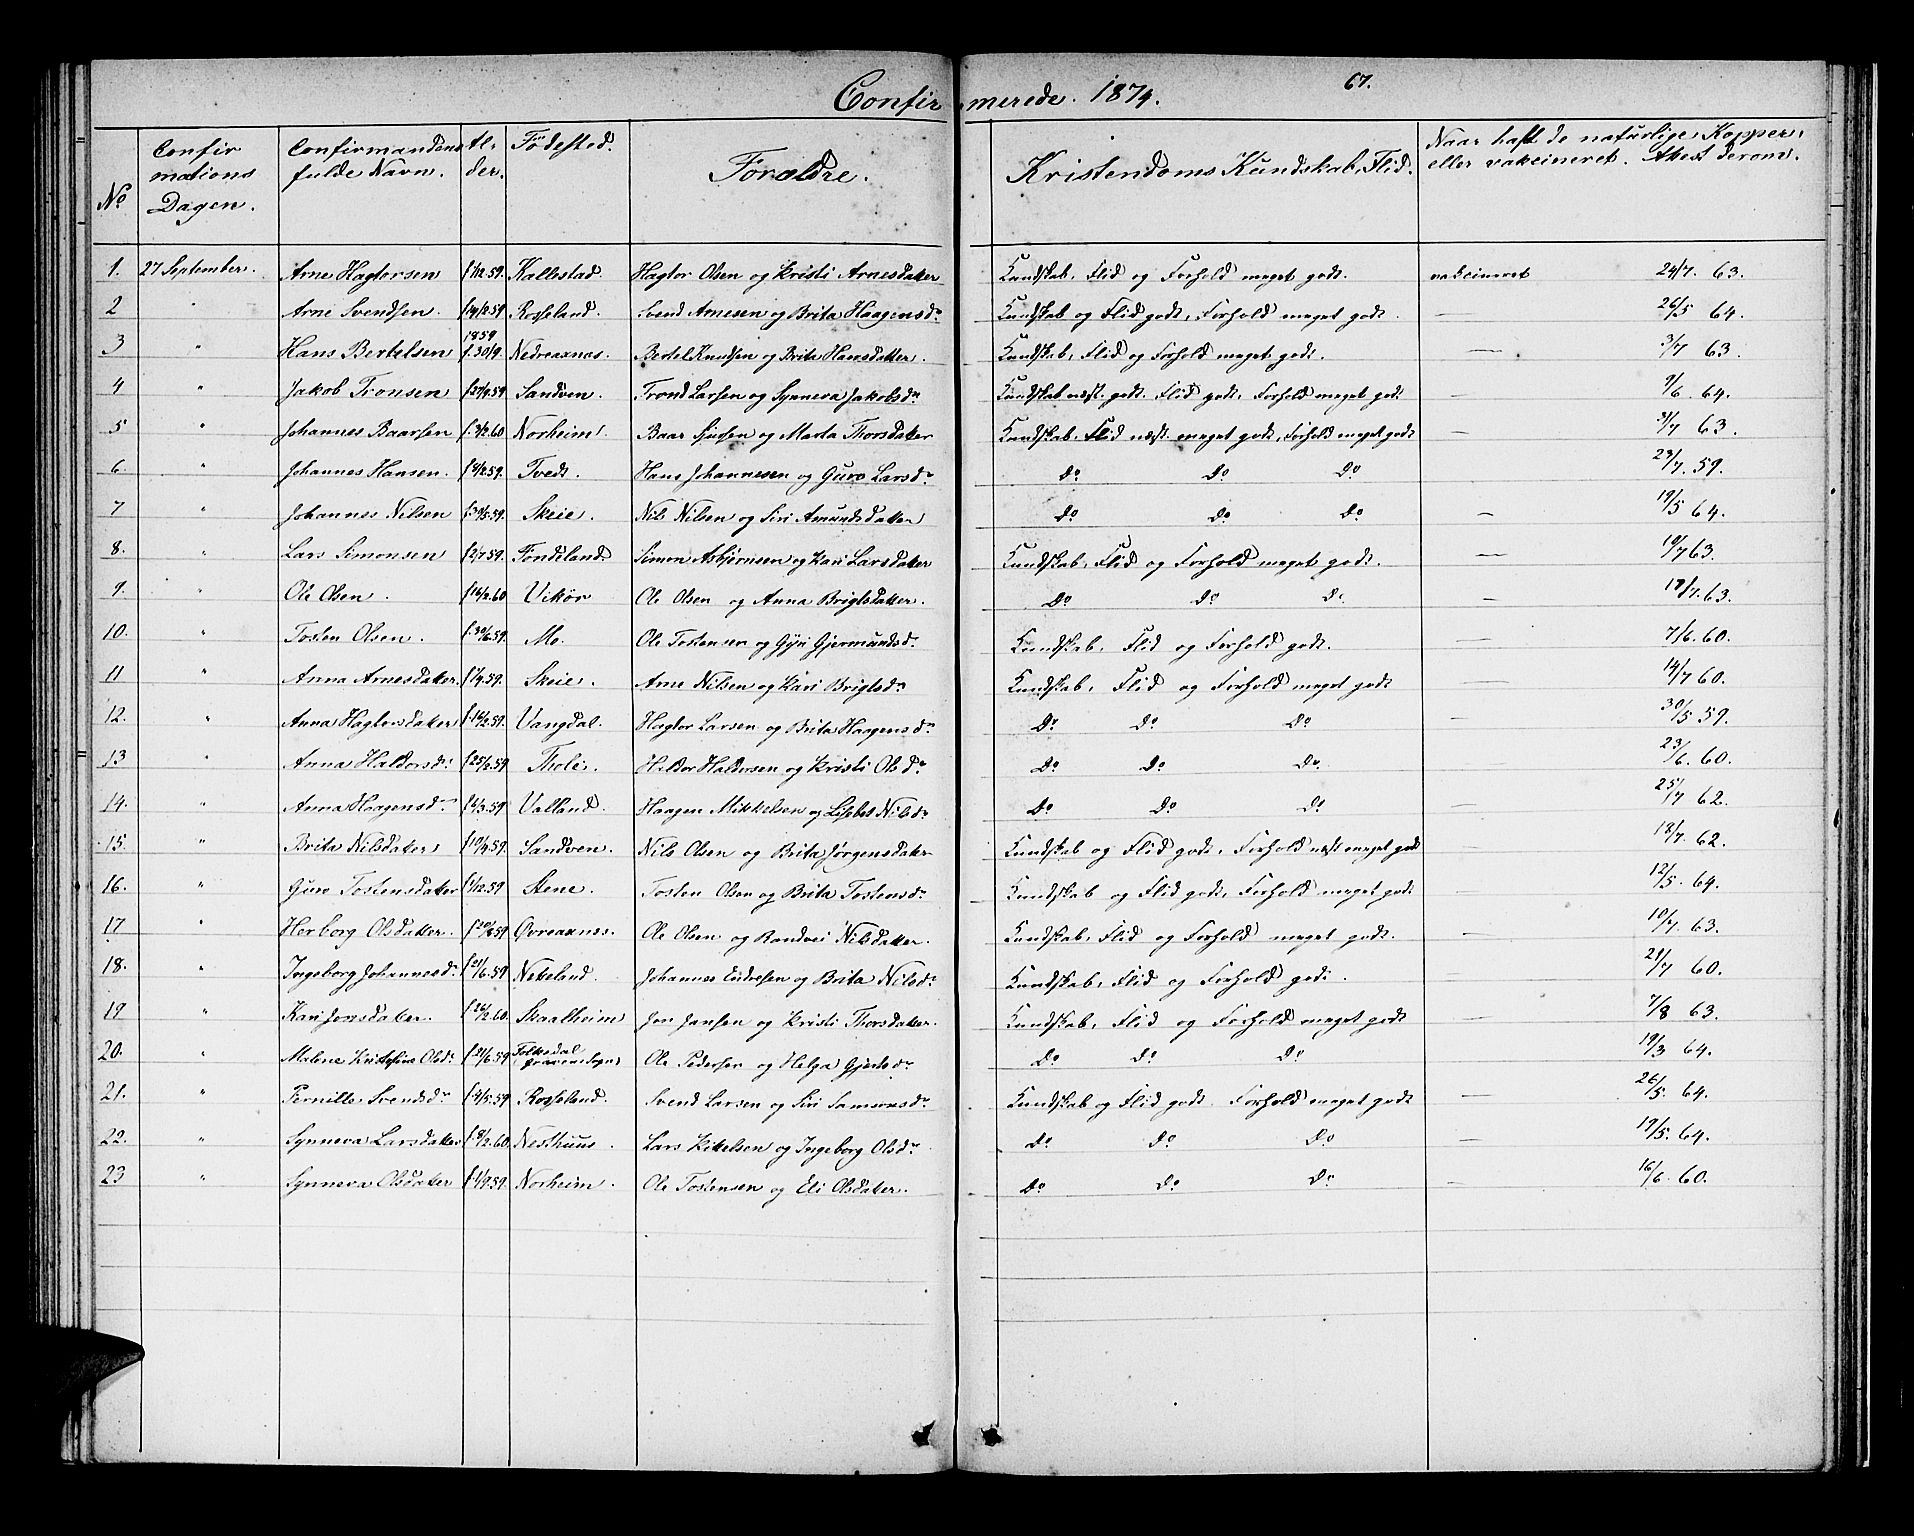 Confirmerede. 1874. 67.
No Confirmations Dagen. Confirmandens fulde Navn. Alder. Fødested. Forældre. Kristendoms Kundskab, Flid. Naar haft de naturlige Kopper, eller vakcineret. Attest derom.
1. 27 September. Arne Hagtorsen f 1/12 59. Kallestad. Hagtor Olsen og Kristi Arnesdatter Kundskab, Flid og Forhold meget godt. vakcineret 24/7. 63.
2 " Arne Svendsen. 59 Rosseland. Svend Arnesen og Brita Haagensdr Kundskab og Flid godt, Forhold meget godt. — 26/5 64.
3 " Hans Bertelsen 1859 f. 30/9. Nedreaxnes. Bertel Knudsen og Brita Hansdatter. Kundskab, Flid og Forhold meget godt. — 3/7 63.
4 " Jakob Tronsen f 27/9. 59 Sandven. Trond Larsen og Synneva Jakobsdr Kundskab næst. godt. Flid godt, Forhold meget godt — 9/6. 64.
5 " Johannes Baarsen f. 3/2. 60 Norheim. Baar Sjursen og Marta Thorsdatter Kundskab, Flid næst. meget godt, Forhold meget godt — 31/7 63.
6 " Johannes Hansen. 59. Tvedt. Hans Johannesen og Guro Larsdr Do Do Do 23/7. 59.
7 " Johannes Nilsen f. 30/5. 59. Skeie. Nils Nilsen og Siri Amundsdatter Do Do Do — 19/5 64.
8. " Lars Simonsen f 2/7. 59. Fondeland Simon Asbjørnsen og Kari Larsdatter Kundskab, Flid og Forhold meget godt. — 10/7 63.
9. " Ole Olsen. f 16/2. 60 Vikør Ole Olsen og Anna Brigtsdatter. Do Do Do — 18/7. 63.
10. " Tosten Olsen. f. 30/6. 59. Mo. Ole Tostensen og Gyri Gjermundsdr Kundskab, Flid og Forhold godt. — 7/6. 60.
11 " Anna Arnesdatter. 59. Skeie. Arne Nilsen og Kari Brigtsdr Kundskab, Flid og Forhold meget godt — 14/7 60.
12. " Anna Hagtorsdatter 59. Vangdal. Hagtor Larsen og Brita Haagensdr Do Do Do — 30/5 59.
13 " Anna Haldorsdr f 25/2. 59 Tholo. Haldor Haldorsen og Kristi Olsdr Do Do Do — 23/6. 60.
14. " Anna Haagensdr 59. Valland. Haagen Mikkelsen og Lisebet Nilsdr Do Do Do — 25/7 62.
15. " Brita Nilsdatter f 10/4. 59. Sandven. Nils Olsen og Brita Jørgensdatter Kundskab og Flid godt, Forhold næst meget godt — 18/7. 62.
16. " Guro Tostensdatter f 1/12. 59. Stene. Tosten Olsen og Brita Tostensdr Kundskab og Flid godt, Forhold meget godt — 12/5. 64.
17 " Herborg Olsdatter. 59 Øvreaxnes. Ole Olsen og Randvei Nilsdatter. Kundskab, Flid og Forhold meget godt. — 10/7. 63.
18. " Ingeborg Johannesdr f 21/6. 59 Neteland. Johannes Eidresen og Brita Nilsdr Kundskab, Flid og Forhold godt. — 21/7 60.
19 " Kari Jonsdatter. f 26/2. 60. Skaalheim Jon Jansen og Kristi Thorsdatter. Kundskab, Flid og Forhold meget godt — 7/8 63.
20. " Malene Kristofira Olsdr f 21/6. 59 Folkedal gravens Sogn Ole Pedersen og Helga Gjertsdr Do Do Do — 19/3 64.
21. " Pernille Svendsdr 59 Rosseland. Svend Larsen og Siri Samsonsdr Kundskab og Flid godt Forhold meget godt — 26/5. 64.
22. " Synneva Larsdatter f. 8/2. 60. Nesthuus. Lars Kittelsen og Ingeborg Olsdr Do Do Do — 19/5. 64.
23 " Synneva Olsdatter 59. Norheim. Ole Tostensen og Eli Olsdatter. Do Do Do — 16/6. 60.